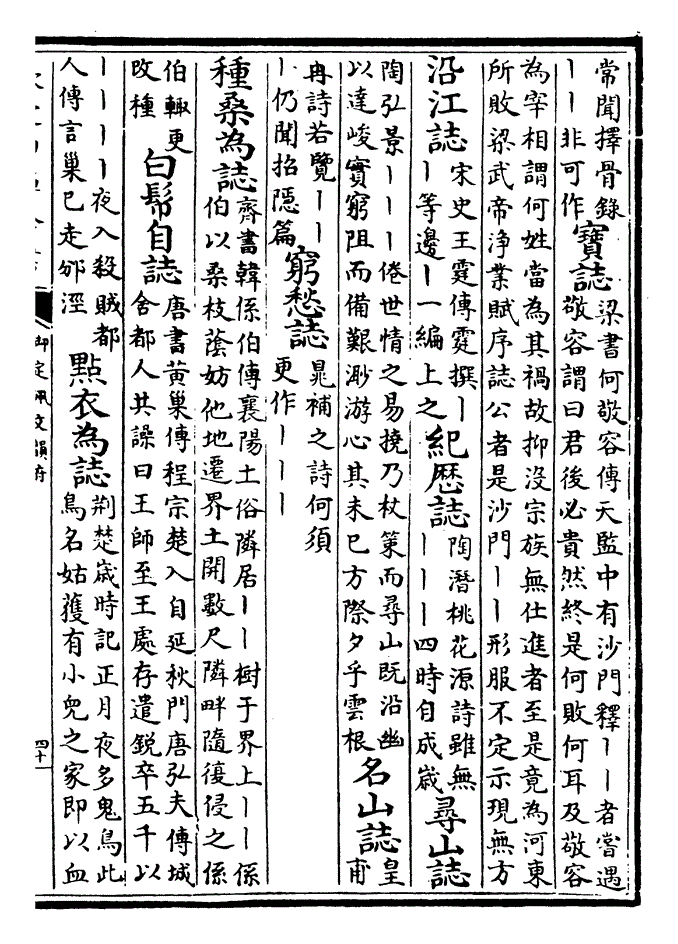 常聞擇骨錄
丨丨非可作
寶誌
梁書何敬容傳天監中有沙門釋丨丨者嘗遇
敬容謂曰君後必貴然終是何敗何耳及敬容
為宰相謂何姓當為其禍故抑没宗族無仕進者至是竟為河東
所敗梁武帝淨業賦序誌公者是沙門丨丨形服不定示現無方
沿江誌
宋史王霆傳霆撰丨
丨等邊丨一編上之
紀歴誌
陶潛桃花源詩雖無
丨丨丨四時自成歲
尋山誌
陶弘景丨丨丨倦世情之易撓乃杖策而尋山既沿幽
以達峻實窮阻而備艱渺游心其未已方際夕乎雲根
名山誌
皇
甫
冉詩若覽丨丨
丨仍聞招隱篇
窮愁誌
晁補之詩何須
更作丨丨丨
種桑為誌
齊書韓係伯傳襄陽土俗隣居丨丨樹于界上丨丨係
伯以桑枝蔭妨他地遷界土開數尺隣畔隨復侵之係
伯輙更
改種
白自誌
唐書黄巢傳程宗楚入自延秋門唐弘夫傳城
舍都人共譟曰王師至王處存遣銳卒五千以
丨丨丨丨夜入殺賊都
人傳言巢已走邠涇
點衣為誌
荆楚歳時記正月夜多鬼鳥此
鳥名姑獲有小兒之家即以血
御定佩文韻府
四十一